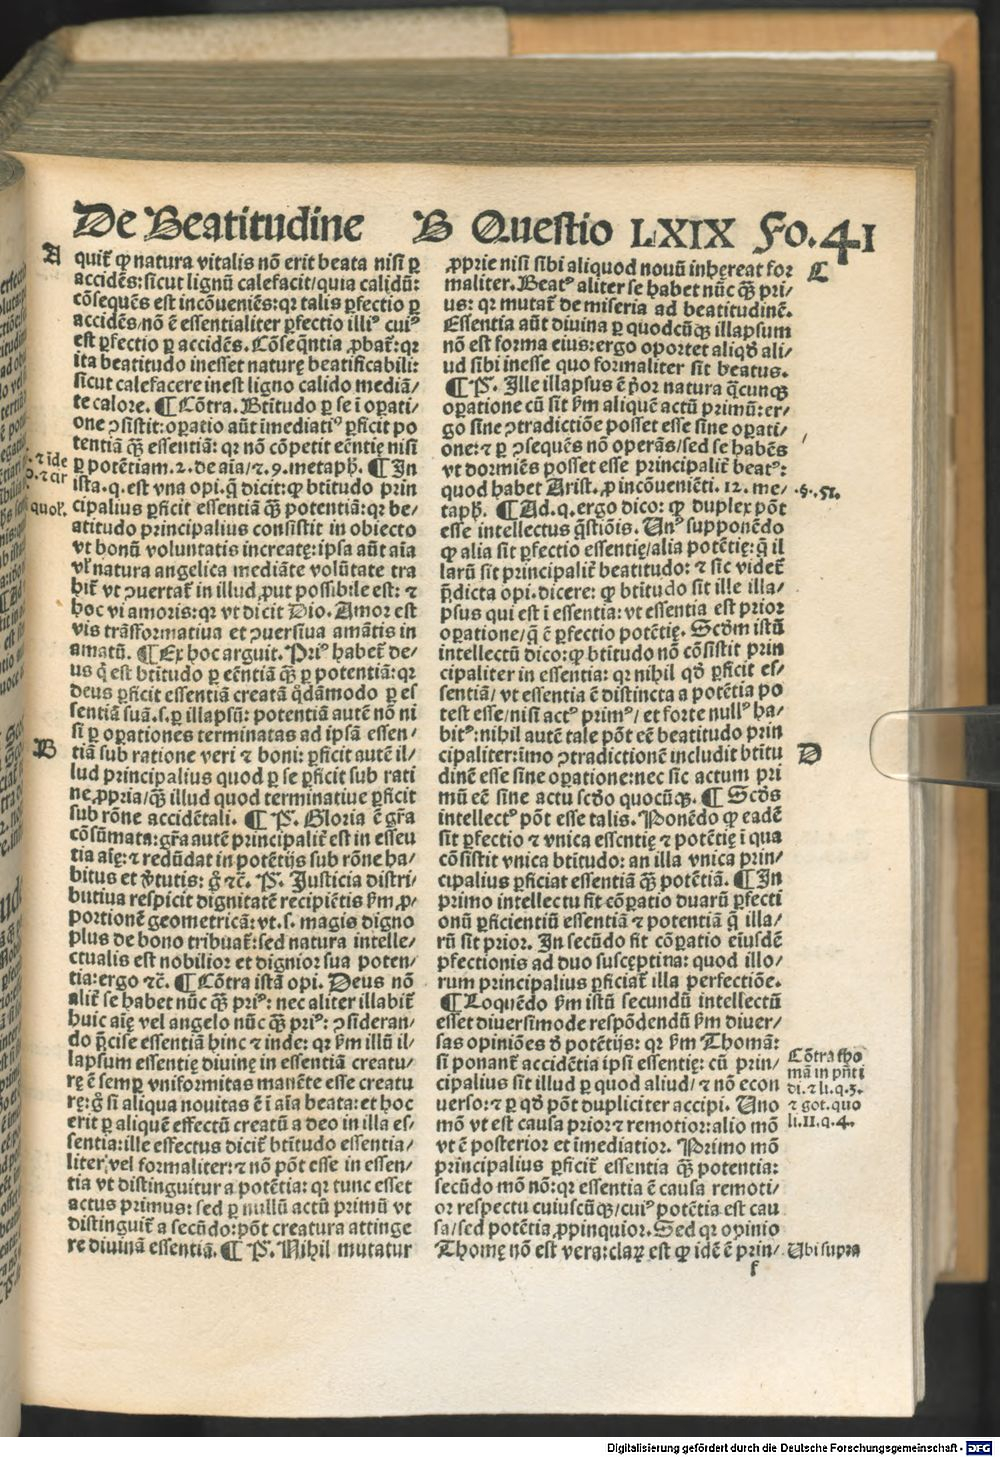 De Beatitudine B Questio LXIX Fo.41
A
quit᷑ ꝙ natura vitalis nō erit beata nisi ꝑ
accidēs: sicut lignū calefacit/quia calidū:
cōsequēs est incōueniēs: qꝛ talis ꝑfectio ꝑ
accidēs/nō ē essentialiter ꝑfectio illiꝰ cuiꝰ
est ꝑfectio ꝑ accidēs. Cōseq̄ntia ꝓbat᷑: qꝛ
ita beatitudo inesset naturę beatificabili:
sicut calefacere inest ligno calido mediā/
te calore. ¶ Cōtra. Btitudo ꝑ se ī oꝑati/
one ↄsistit: oꝑatio aūt imediatiꝰ ꝑficit po
tentiā qͣꝫ essentiā: qꝛ nō cōpetit eēntię nisi
ꝑ potētiam. 2. de aīa/⁊. 9. metapḣ. ¶ In
ista. q. est vna opi. q̄ dicit: ꝙ btitudo prin
cipalius ꝑficit essentiā qͣꝫ potentiā: qꝛ be/
atitudo principalius consistit in obiecto
vt bonū voluntatis increatę: ipsa aūt aīa
vl̓ natura angelica mediāte volūtate tra
hit᷑ vt ↄuertat᷑ in illud, ꝓut possibile est: ⁊
hoc vi amoris: qꝛ vt dicit Dio. Amor est
vis trāsformatiua et ↄuersiua amātis in
amatū. ¶ Ex hoc arguit. Priꝰ habet᷑ de/
us q̇ est btitudo ꝑ eēntiā qͣꝫ ꝑ potentiā: qꝛ
deus ꝑficit essentiā creatā q̇dāmodo ꝑ es
sentiā suā. s. ꝑ illapsū: potentiā autē nō ni
si ꝑ oꝑationes terminatas ad ipsā essen/
B
tiā sub ratione veri ⁊ boni: ꝑficit autē il/
lud principalius quod ꝑ se ꝑficit sub rati
ne ꝓpria/qͣꝫ illud quod terminatiue ꝑficit
sub rōne accidētali. ¶ P̄. Gloria ē gr̄a
cōsūmata: gr̄a autē principalit᷑ est in esseu
tia aīę: ⁊ redūdat in potētijs sub rōne ha/
bitus et v̓tutis: g̊ ⁊c̄. P̄. Justicia distri/
butiua respicit dignitatē recipiētis ẜm ꝓ/
portionē geometricā: vt. s. magis digno
plus de bono tribuat᷑: sed natura intelle/
ctualis est nobilior et dignior sua poten/
tia: ergo ⁊c̄. ¶ Cōtra istā opi. Deus nō
alit᷑ se habet nūc qͣꝫ priꝰ: nec aliter illabit᷑
huic aīę vel angelo nūc qͣꝫ priꝰ: ↄsideran/
do p̄cise essentiā hinc ⁊ inde: qꝛ ẜm illū il/
lapsum essentię diuinę in essentiā creatu/
rę ē semꝑ vniformitas manēte esse creatu
rę: g̊ si aliqua nouitas ē ī aīa beata: et hoc
erit ꝑ aliquē effectū creatū a deo in illa es/
sentia: ille effectus dicit᷑ btītudo essentia/
liter, vel formaliter: ⁊ nō pōt esse in essen/
tia vt distinguitur a potētia: qꝛ tunc esset
actus primus: sed ꝑ nullū actū primū vt
distinguit᷑ a secūdo: pōt creatura attinge
re diuinā essentiā. ¶ P̄. Nihil mutatur
ꝓprie nisi sibi aliquod nouū inhereat for
C
maliter. Beatꝰ aliter se habet nūc qͣꝫ pri/
us: qꝛ mutat᷑ de miseria ad beatitudinē.
Essentia aūt diuina ꝑ quodcūqꝫ illapsum
nō est forma eius: ergo oportet aliqḋ ali/
ud sibi inesse quo formaliter sit beatus.
¶ P̄. Ille illapsus ē p̓or natura q̄cunqꝫ
oꝑatione cū sit ẜm aliquē actū primū: er/
go sine ↄtradictiōe posset esse sine oꝑati/
one: ⁊ ꝑ ↄsequēs nō operās/sed se habēs
vt dormiēs posset esse principalit᷑ beatꝰ:
quod habet Arist. ꝓ incōueniēti. 12. me/
.§. 51.
tapḣ. ¶ Ad. q. ergo dico: ꝙ duplex pōt
esse intellectus q̄stiōis. Unꝰ supponēdo
ꝙ alia sit ꝑfectio essentię/alia potētię: q̄ il
larū sit principalit᷑ beatitudo: ⁊ sic videt᷑
p̄dicta opi. dicere: ꝙ btitudo sit ille illa/
psus qui est ī essentia: vt essentia est prior
oꝑatione/q̄ ē ꝑfectio potētię. Scḋm istū
intellectū dico: ꝙ btitudo nō cōsistit prin
cipaliter in essentia: qꝛ nihil qḋ ꝑficit es/
sentiā/ vt essentia ē distincta a potētia po
test esse/nisi actꝰ primꝰ/ et forte nullꝰ ha/
bitꝰ: nihil autē tale pōt eē beatitudo prin
D
cipaliter: imo ↄtradictionē includit btitu
dinē esse sine oꝑatione: nec sic actum pri
mū eē sine actu scḋo quocūqꝫ. ¶ Scḋs
intellectꝰ pōt esse talis. Ponēdo ꝙ eadē
sit ꝑfectio ⁊ vnica essētię ⁊ potētię ī qua
cōsistit vnica btitudo: an illa vnica prin/
cipalius ꝑficiat essentiā qͣꝫ potētiā. ¶ In
primo intellectu fit cōꝑatio duarū ꝑfecti
onū ꝑficientiū essentiā ⁊ potentiā q̄ illa/
rū sit prior. In secūdo fit cōꝑatio eiusdē
pfectionis ad duo susceptina: quod illo/
rum principalius ꝑficiat᷑ illa perfectiōe.
¶ Loquēdo ẜm istū secundū intellectū
esset diuersimode respōdendū ẜm diuer/
sas opiniōes ḋ potētijs: qꝛ ẜm Thomā:
Cōtra tho
si ponant᷑ accidētia ipsi essentię: cū prin/
mā in p̄nti
cipalius sit illud ꝑ quod aliud/⁊ nō econ
di. ⁊ li. q. 3.
uerso: ⁊ ꝑ qḋ pōt dupliciter accipi. Uno
⁊ got. quo
mō vt est causa prior ⁊ remotior: alio mō
li. 11. q. 4.
vt ē posterior et īmediatior. Primo mō
principalius ꝑficit᷑ essentia qͣꝫ potentia:
secūdo mō nō: qꝛ essentia ē causa remoti/
or respectu cuiuscūqꝫ/cuiꝰ potētia est cau
sa/sed potētia ꝓpinquior. Sed qꝛ opinio
Thomę nō est vera: claꝝ est ꝙ idē ē prin/
Ubi supra
f